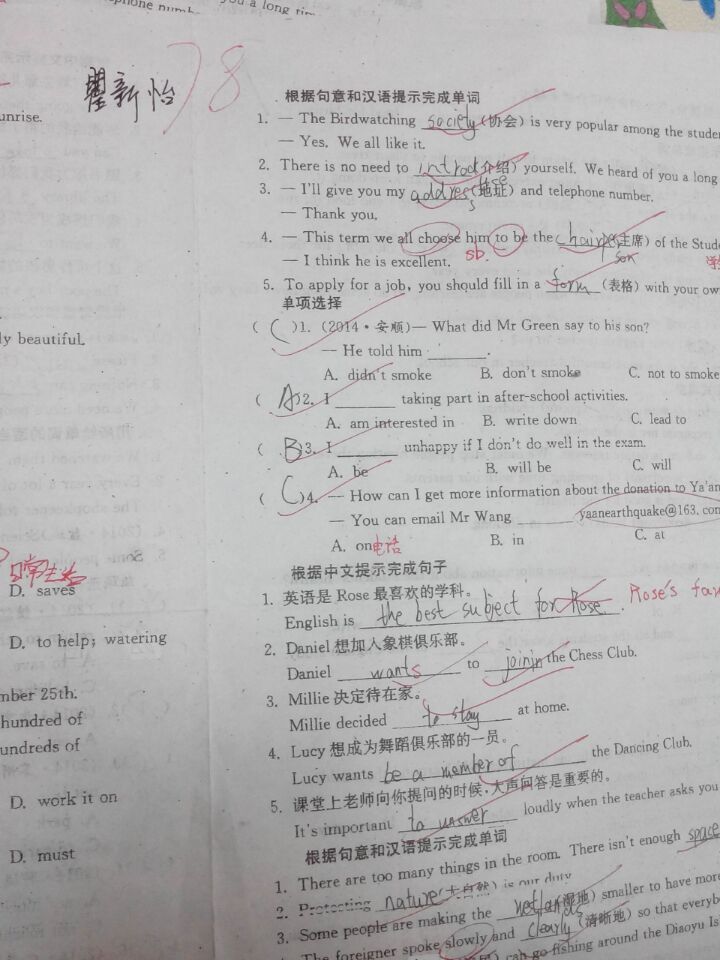 phone numb
u a long tim
unrise.
瞿新怡 78
根据句意和汉语提示完成单词
1. — The Birdwatching society (协会) is very popular among the stude
— Yes. We all like it.
2. There is no need to introduce (介绍) yourself. We heard of you a long
3. — I'll give you my address (地址) and telephone number.
— Thank you.
4. — This term we all choose him to be the chairperson (主席) of the Stude
sb.
— I think he is excellent.
5. To apply for a job, you should fill in a form (表格) with your own
单项选择
( C )1. (2014·安顺)— What did Mr Green say to his son?
— He told him ______.
A. didn't smoke B. don't smoke C. not to smoke
( A )2. I ______ taking part in after-school activities.
A. am interested in B. write down C. lead to
( B )3. I ______ unhappy if I don't do well in the exam.
A. be B. will be C. will
( C )4. — How can I get more information about the donation to Ya'an
— You can email Mr Wang ______ yaanearthquake@163.com
A. on 电话 B. in C. at
根据中文提示完成句子
1. 英语是 Rose 最喜欢的学科。
English is the best subject for Rose. Rose's fav
2. Daniel 想加入象棋俱乐部。
Daniel wants to join in the Chess Club.
3. Millie 决定待在家。
Millie decided to stay at home.
4. Lucy 想成为舞蹈俱乐部的一员。
Lucy wants be a member of the Dancing Club.
5. 课堂上老师向你提问的时候,大声回答是重要的。
It's important to answer loudly when the teacher asks you
根据句意和汉语提示完成单词
1. There are too many things in the room. There isn't enough space
2. Protecting nature (大自然) is our duty
3. Some people are making the wetlands (湿地) smaller to have more
The foreigner spoke slowly and clearly (清晰地) so that everyb
can go fishing around the Diaoyu Is
ly beautiful.
日常生活
D. saves
D. to help; watering
mber 25th.
hundred of
undreds of
D. work it on
D. must